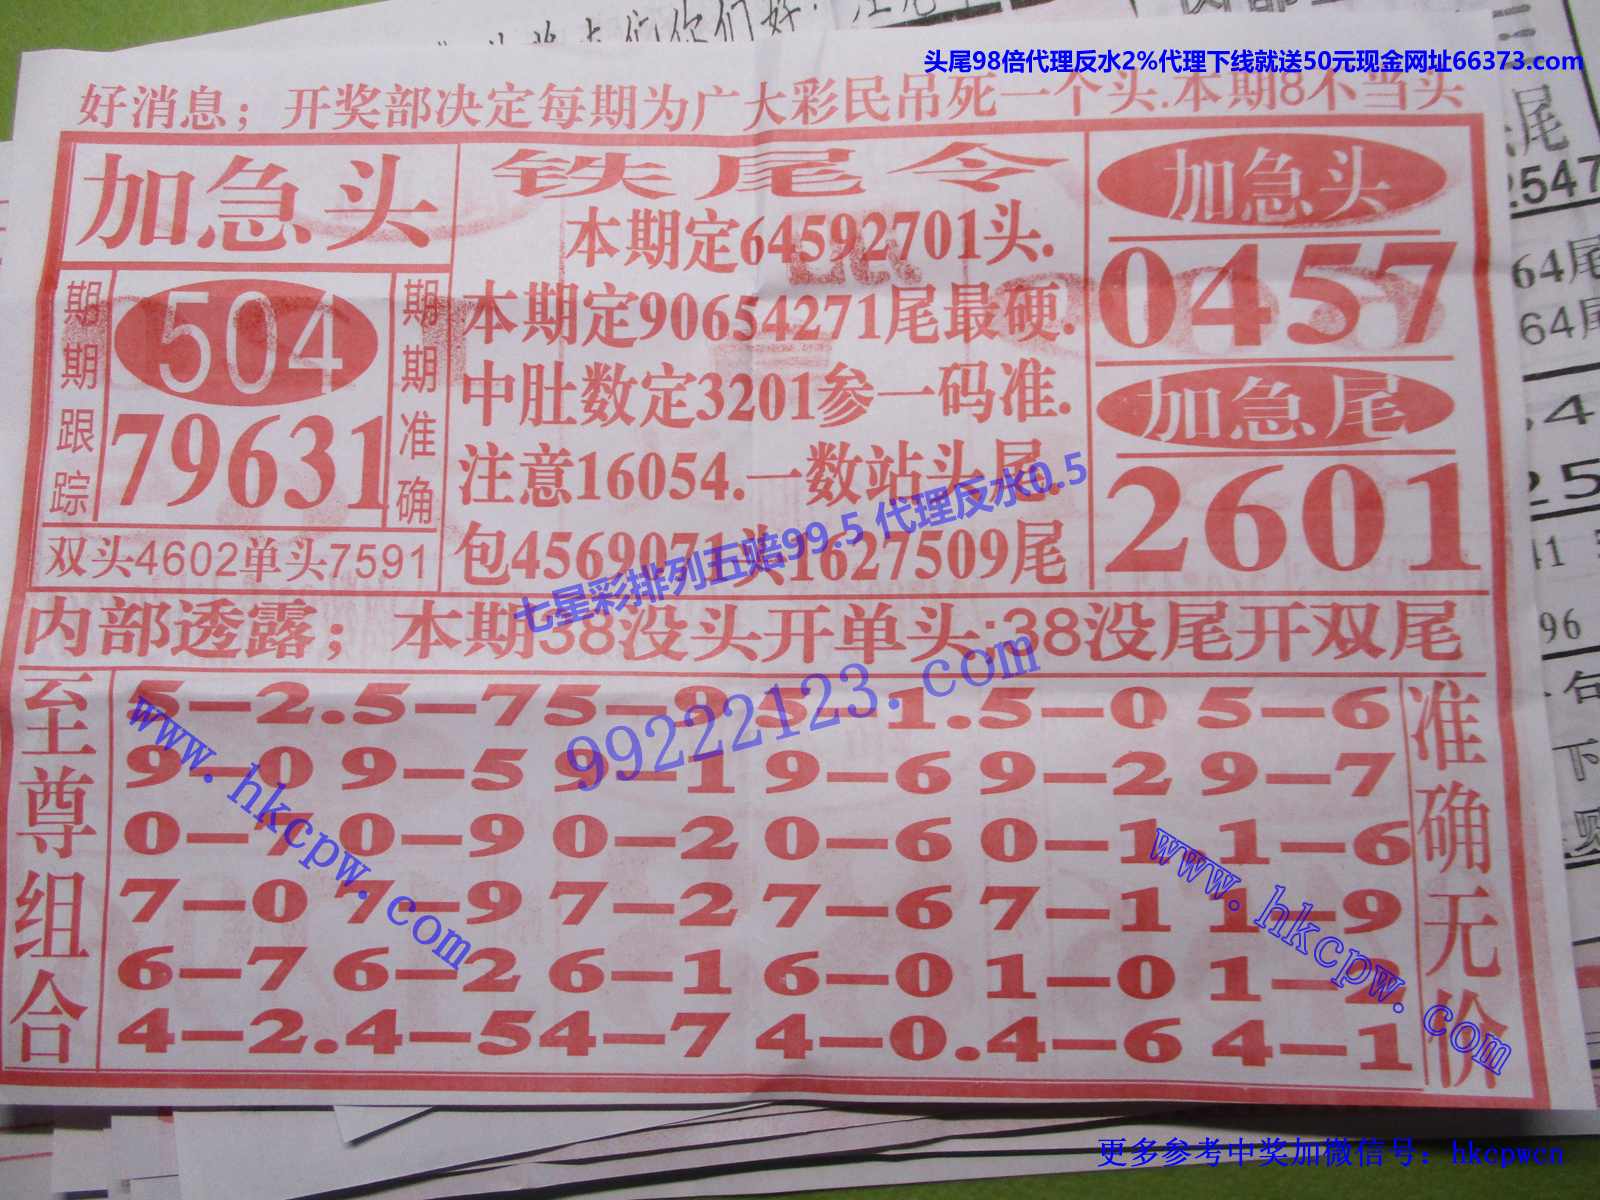 头尾98倍代理反水2%代理下线就送50元现金网址66373.com
好消息；开奖部决定每期为广大彩民吊死一个头.本期8不当头
加急头
期期跟踪
504
79631
期期准确
双头4602单头7591
铁尾令
本期定64592701头.
本期定90654271尾最硬.
中肚数定3201参一码准.
注意16054.一数站头尾.
包4569071头1627509尾
加急头
0457
加急尾
2601
七星彩排列五赔99.5 代理反水0.5
内部透露；本期38没头开单头;38没尾开双尾
99222123.com
至尊组合
5—2.5—75—95—1.5—0 5—6
9—0 9—5 9—1 9—6 9—2 9—7
0—7 0—9 0—2 0—6 0—1 1—6
7—0 7—9 7—2 7—6 7—1 1—9
6—7 6—2 6—1 6—0 1—0 1—2
4—2.4—54—7 4—0.4—6 4—1
准确无价
www.hkcpw.com
www.hkcpw.com
尾
2547
64尾
64尾
25
41
96
下
更多参考中奖加微信号：hkcpwcn